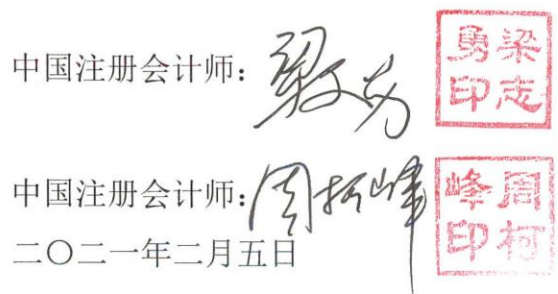 中国注册会计师：梁志勇
梁志勇印
中国注册会计师：周柯峰
周柯峰印
二〇二一年二月五日